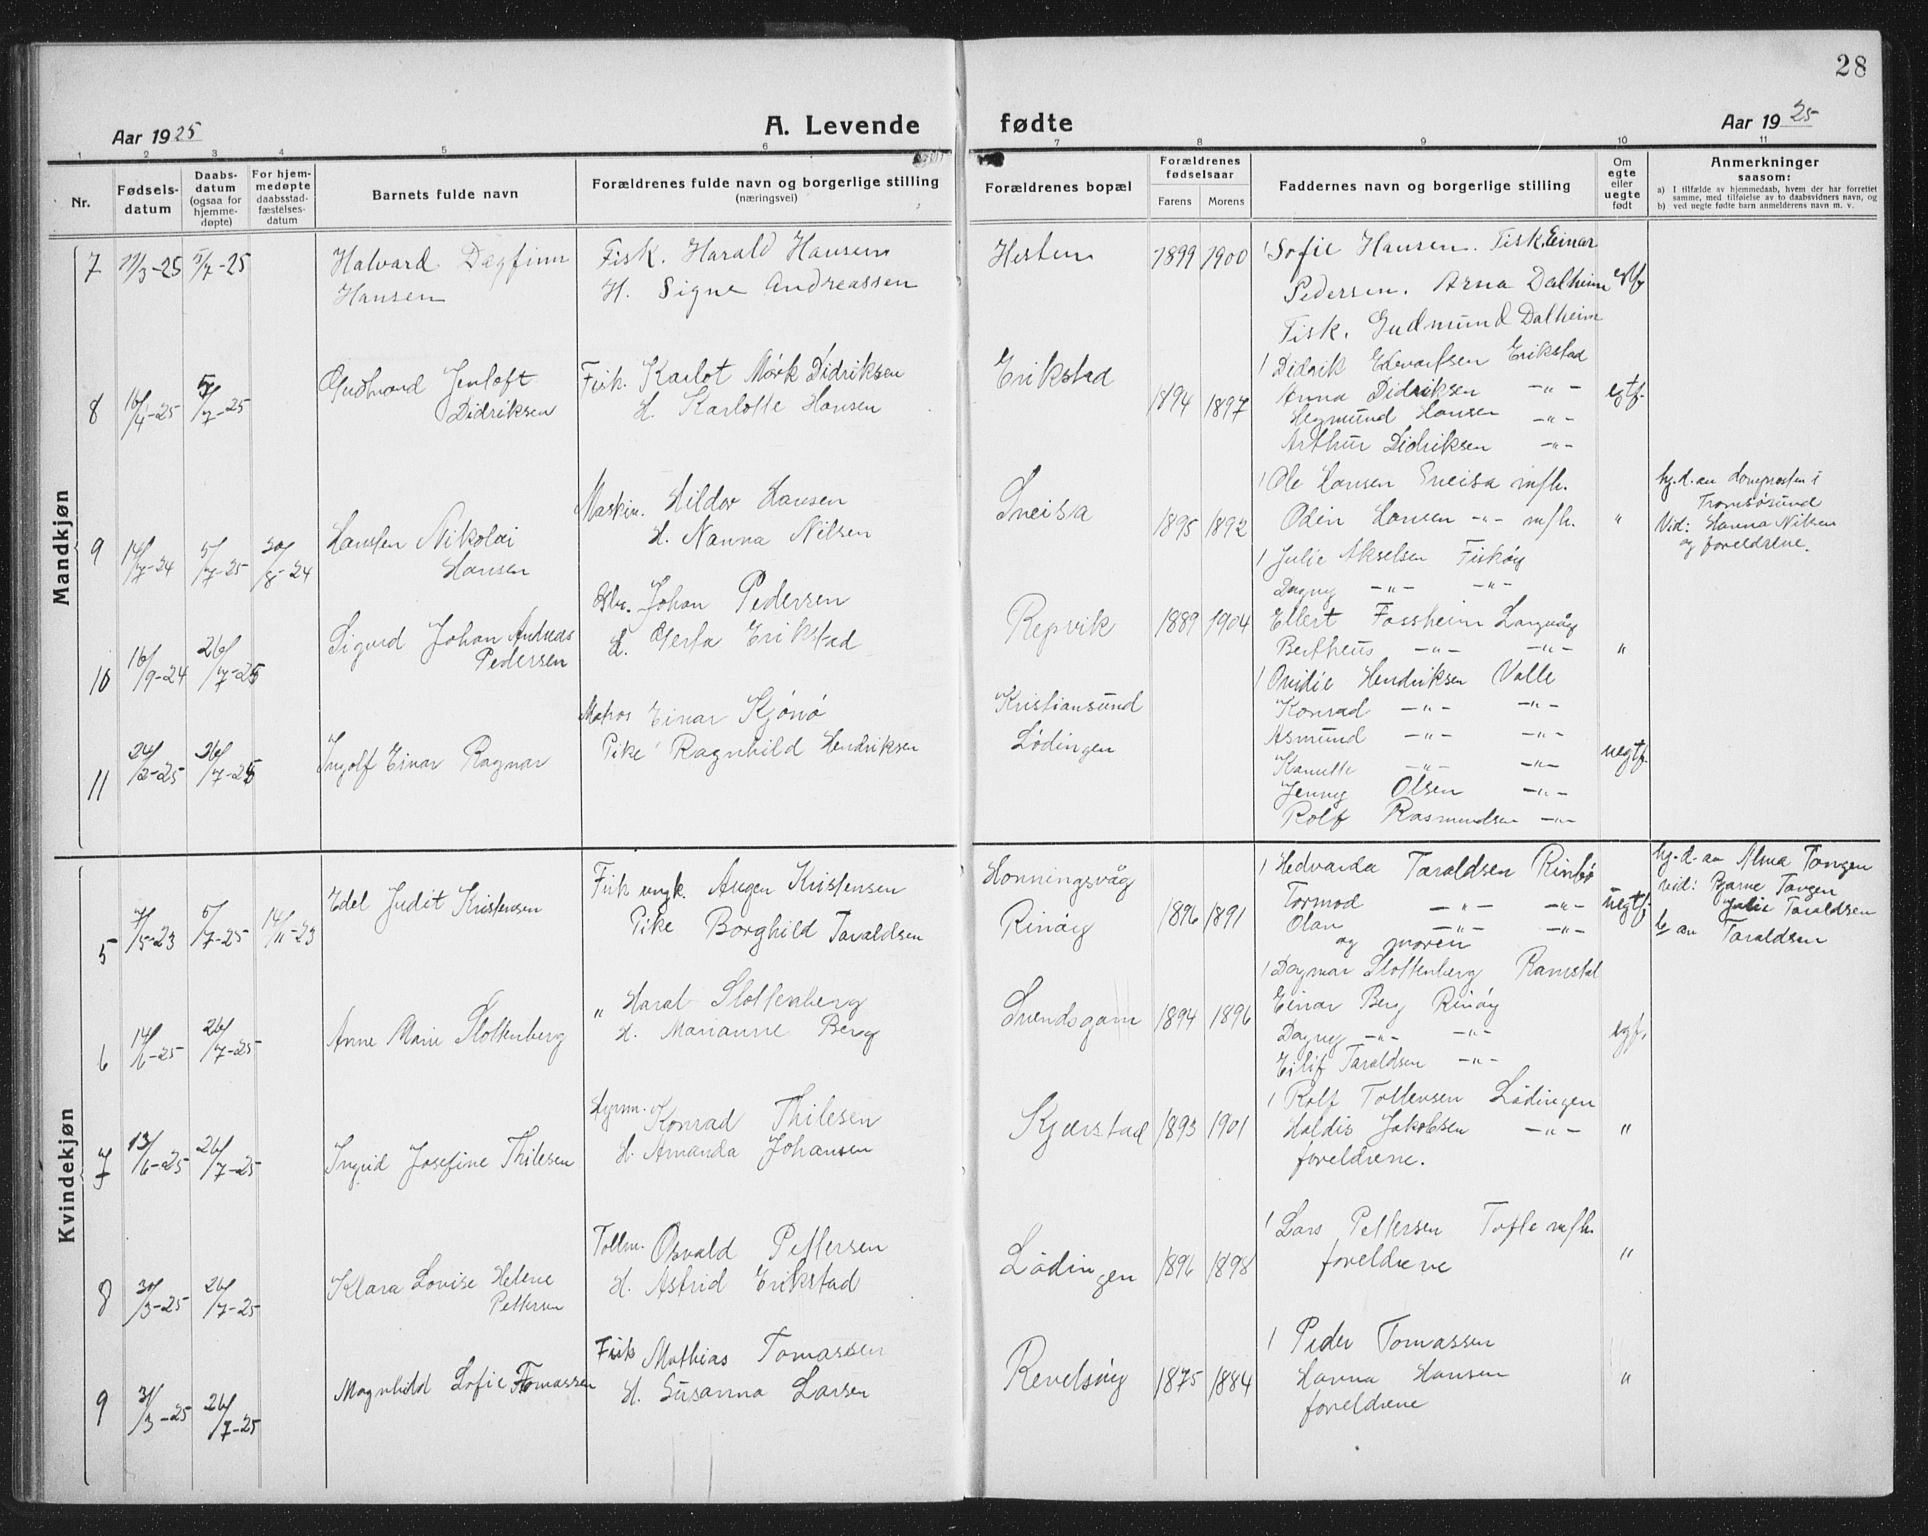 28
Aar 1925
A. Levende fødte
Aar 1925
1 2 3 4 5 6 7 8 9 10 11
Nr.
Fødsels-
datum
Daabs-
datum
(ogsaa for
hjemme-
døpte)
For hjem-
medøpte
daabsstad-
fæstelses-
datum
Barnets fulde navn
Forældrenes fulde navn og borgerlige stilling
(næringsvei)
Forældrenes bopæl
Forældrenes
fødselsaar
Farens Morens
Faddernes navn og borgerlige stilling
Om
egte
eller
uegte
født
Anmerkninger
saasom:
a) I tilfælde av hjemmedaab, hvem der har forrettet
samme, med tilføielse av to daabsvidners navn, og
b) ved uegte fødte barn anmelderens navn m. v.
Mandkjøn
7 11/3-25 5/7-25
Halvard Dagfinn
Hansen
Fisk. Harald Hansen
H. Signe Andreassen
Hesten
1899 1900
1 Sofie Hansen. Fisk. Einar
Pedersen. Arna Dalheim
Fisk. Gudmund Dalheim
egtf
8 16/4-25 5/7-25
Gudtvard Jenloft
Didriksen
Fisk. Karlot Mørk Didriksen
H. Karlotte Hansen
Erikstad
1894 1897
1 Didrik Edvartsen Erikstad
Anna Didriksen -"-
Hegmund Hansen -"-
Arthur Didriksen -"-
egtf.
9 14/7-24 5/7-25 30/8-24
Hansten Nikolai
Hansen
Maskin. Hildor Hansen
H. Nanna Nilsen
Sneisa
1895 1892
1 Ole Hansen Sneisa m/h.
Odin Hansen -"- m/h.
1 Julie Akselsen Fiskøy
Dagny -"- -"-
"
hj.d. av sognepresten i
Tromsøsund
Vid: Hanna Nilsen
og foreldrene.
10 16/9-24 26/7-25
Sigurd Johan Andreas
Pedersen
Johan Pedersen
H. Gerda Erikstad
Repvik
1889 1904
Ellert Fossheim Langvåg
Bertheus -"- -"-
"
11 24/2-25 26/7-25
Ingolf Einar Ragnar
Matros Einar Kjønø
Pike Ragnhild Hendriksen
Kristiansund
Lødingen
1 Ovidie Hendriksen Valle
Konrad -"- -"-
Asmund -"- -"-
Kanutte -"- -"-
Jenny Olsen -"-
Rolf Rasmundsen -"-
uegtf.
Kvindekjøn
5 7/5-23 5/7-25 14/11-23
Edel Judit Kristensen
Fisk ungk. Augen Kristensen
Pike Borghild Taraldsen
Honningsvåg
Rinøy
1896 1891
1 Hedvarda Taraldsen Rinø
Tormod -"- -"-
Olav -"- -"-
og moren
uegtf.
hj.d. av Alma Tangen
vid: Bjarne Tangen
Julie Taraldsen
b/ av Taraldsen
6 14/6-25 26/7-25
Anne Marie Stoltenberg
" Haral Stoltenberg
H. Marianne Berg
Svendsgam
1894 1896
1 Dagmar Stoltenberg Ramstad
Einar Berg Rinøy
Dagny -"- -"-
Eilif Taraldsen -"-
egtf.
7 13/6-25 26/7-25
Ingrid Josefine Thilesen
Konrad Thilesen
H. Amanda Johansen
Kjærstad
1893 1901
1 Rolf Tollevsen Lødingen
Haldis Jakobsen -"-
foreldrene.
"
8 30/3-25 26/7-25
Klara Lovise Helene
Pettersen
Osvald Pettersen
H. Astrid Erikstad
Lødingen
1896 1898
1 Lars Pettersen Tofte m/h.
foreldrene
"
9 31/3-25 26/7-25
Magnhild Sofie Tomassen
Fisk Mathias Tomassen
H. Susanna Larsen
Revelsøy
1875 1884
1 Peder Tomassen
Hanna Hansen
foreldrene
"